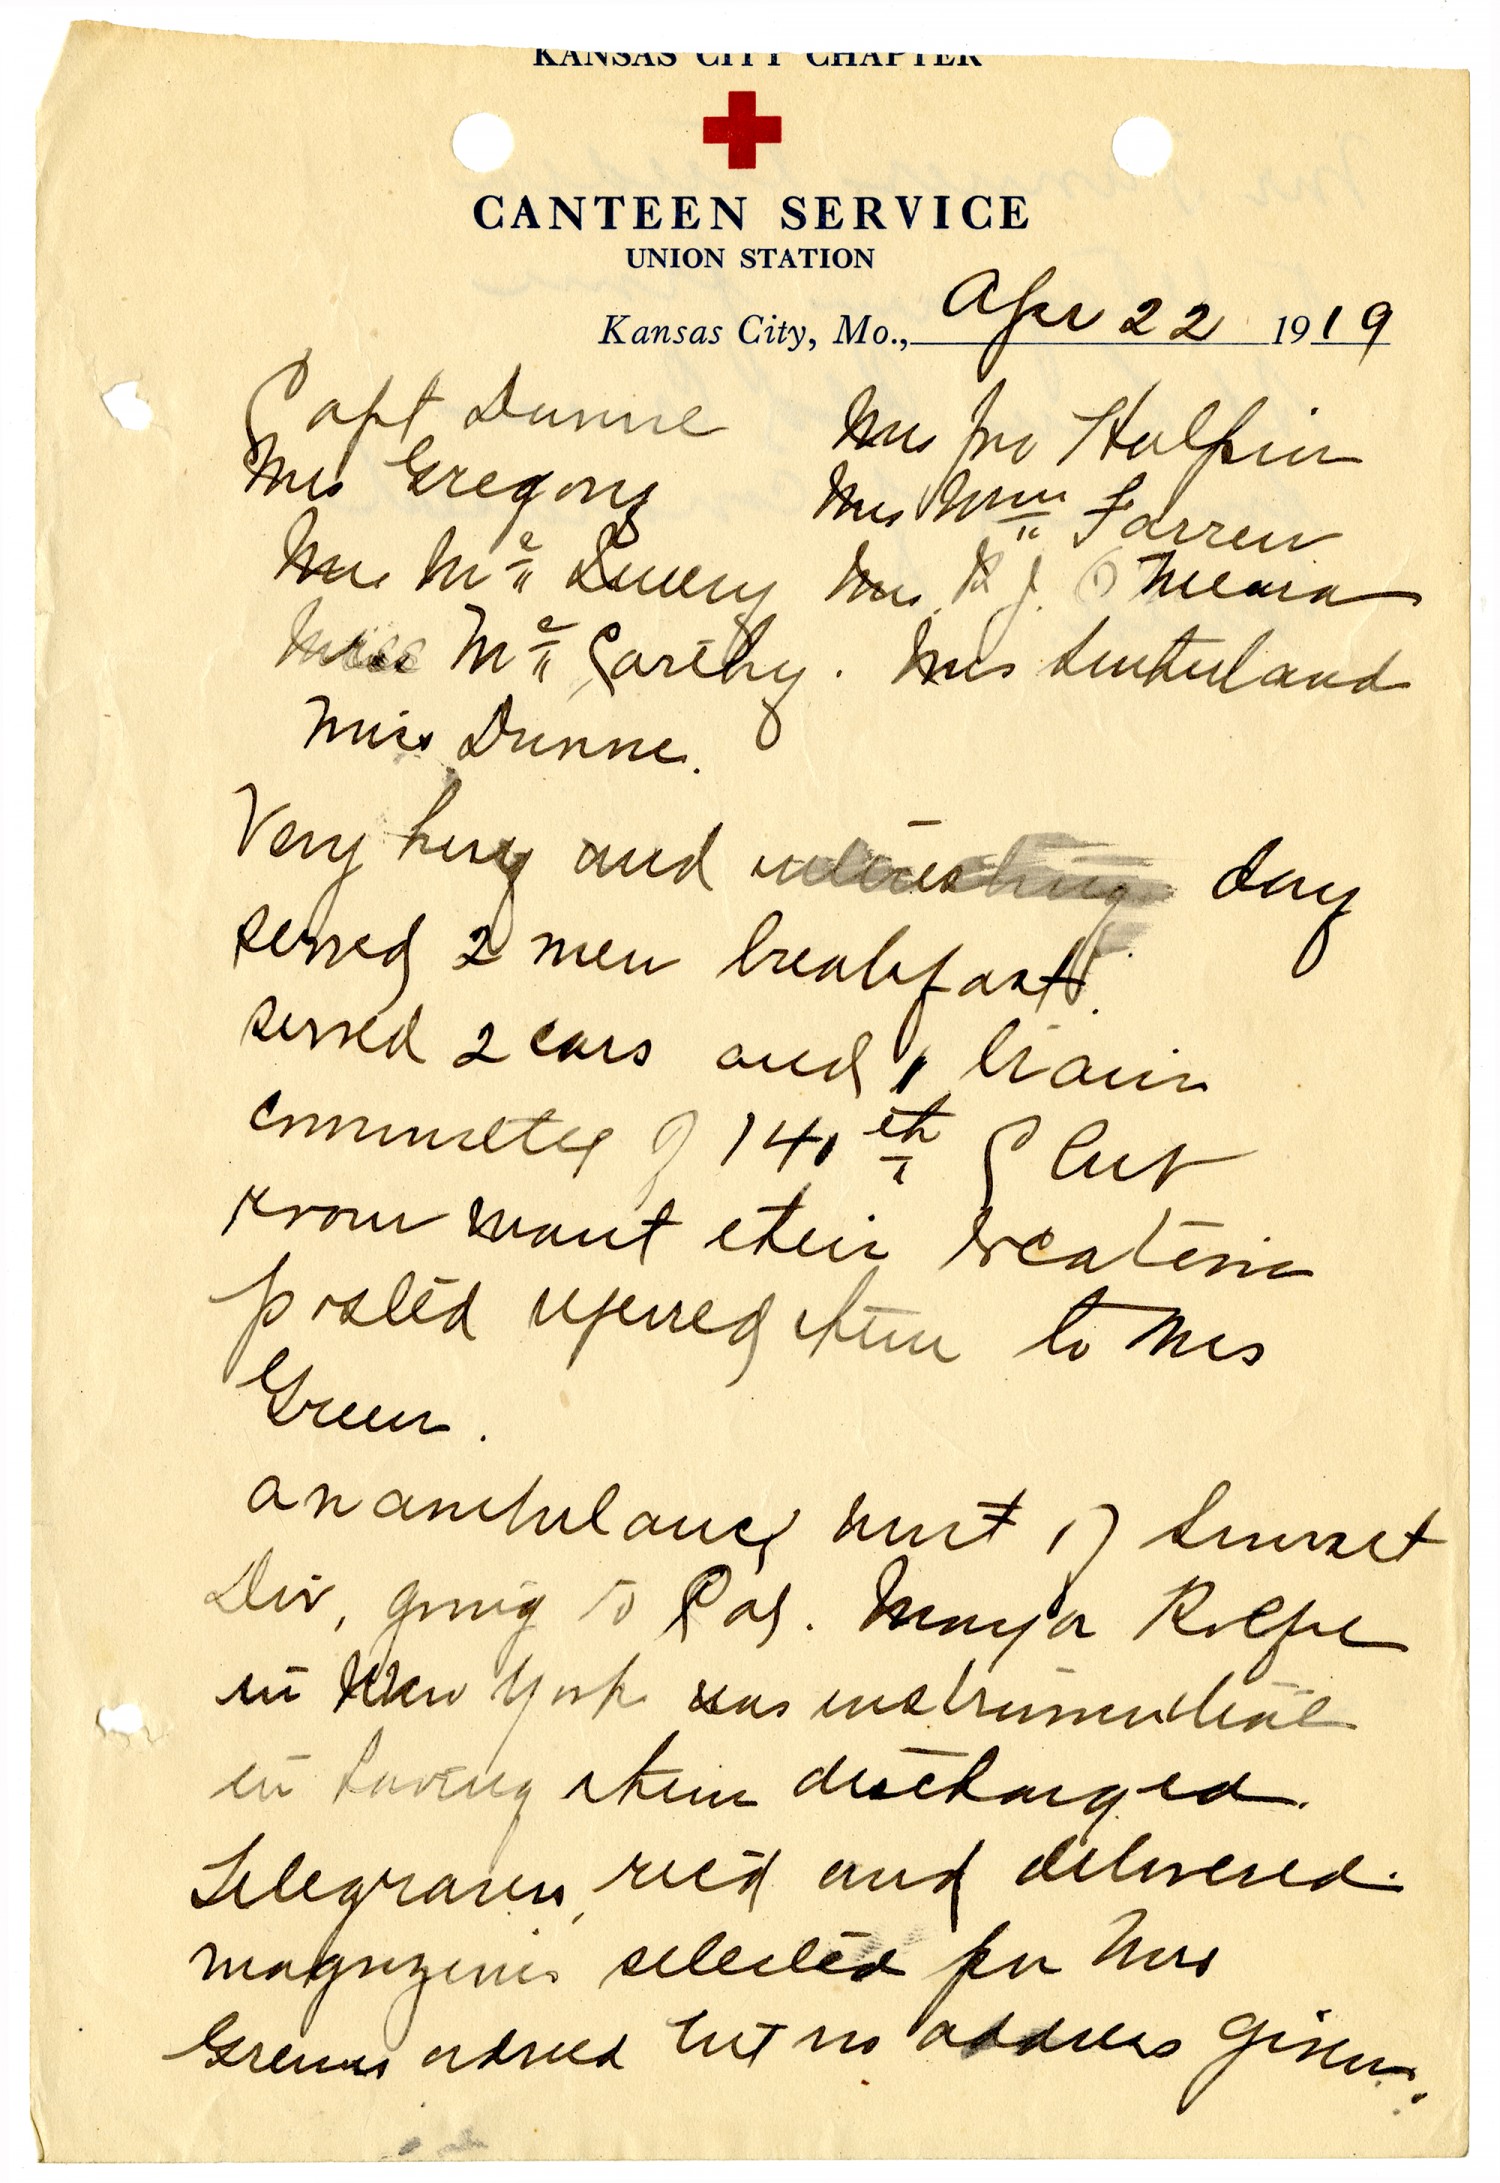 KANSAS CITY CHAPTER
CANTEEN SERVICE
UNION STATION
Kansas City, Mo., Apr 22 1919
Capt Dunne Mrs Jno Halpin
Mrs Gregory Mrs Wm Farren
Mrs Mc Mrs R J. O Meara
Miss Mc Carthy. Mrs Sutherland
Miss Dunne.
Very busy and interesting day
served 2 men breakfast.
served 2 cars and 1 train
committee of 140th Club
room want their location
posted referred them to Mrs
Green.
an ambulance unit of Sunset
Div, going to Cal. Mayor Rolph
in New York was instrumental
in having them discharged.
Telegrams rec'd and delivered.
magazines selected for Mrs
Greens ordered but no address given.